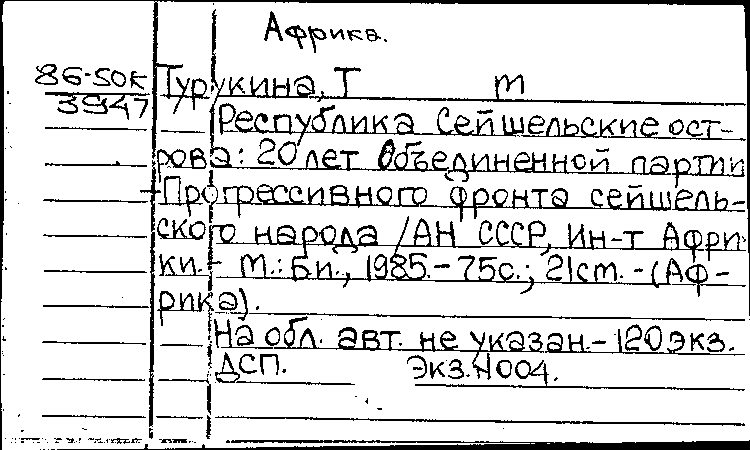 Африка.
86-50к Турукина, Т т
3947
Республика Сейшельские ост-
рова: 20 лет Объединенной партии
-Прогрессивного фронта сейшель-
ского народа /АН СССР, Ин-т Афри
ки.- М.: Б.и., 1985.-75с.; 21ст. -(Аф-
рика).
На обл. авт. не указан.-120экз.
ДСП. Экз.N004.